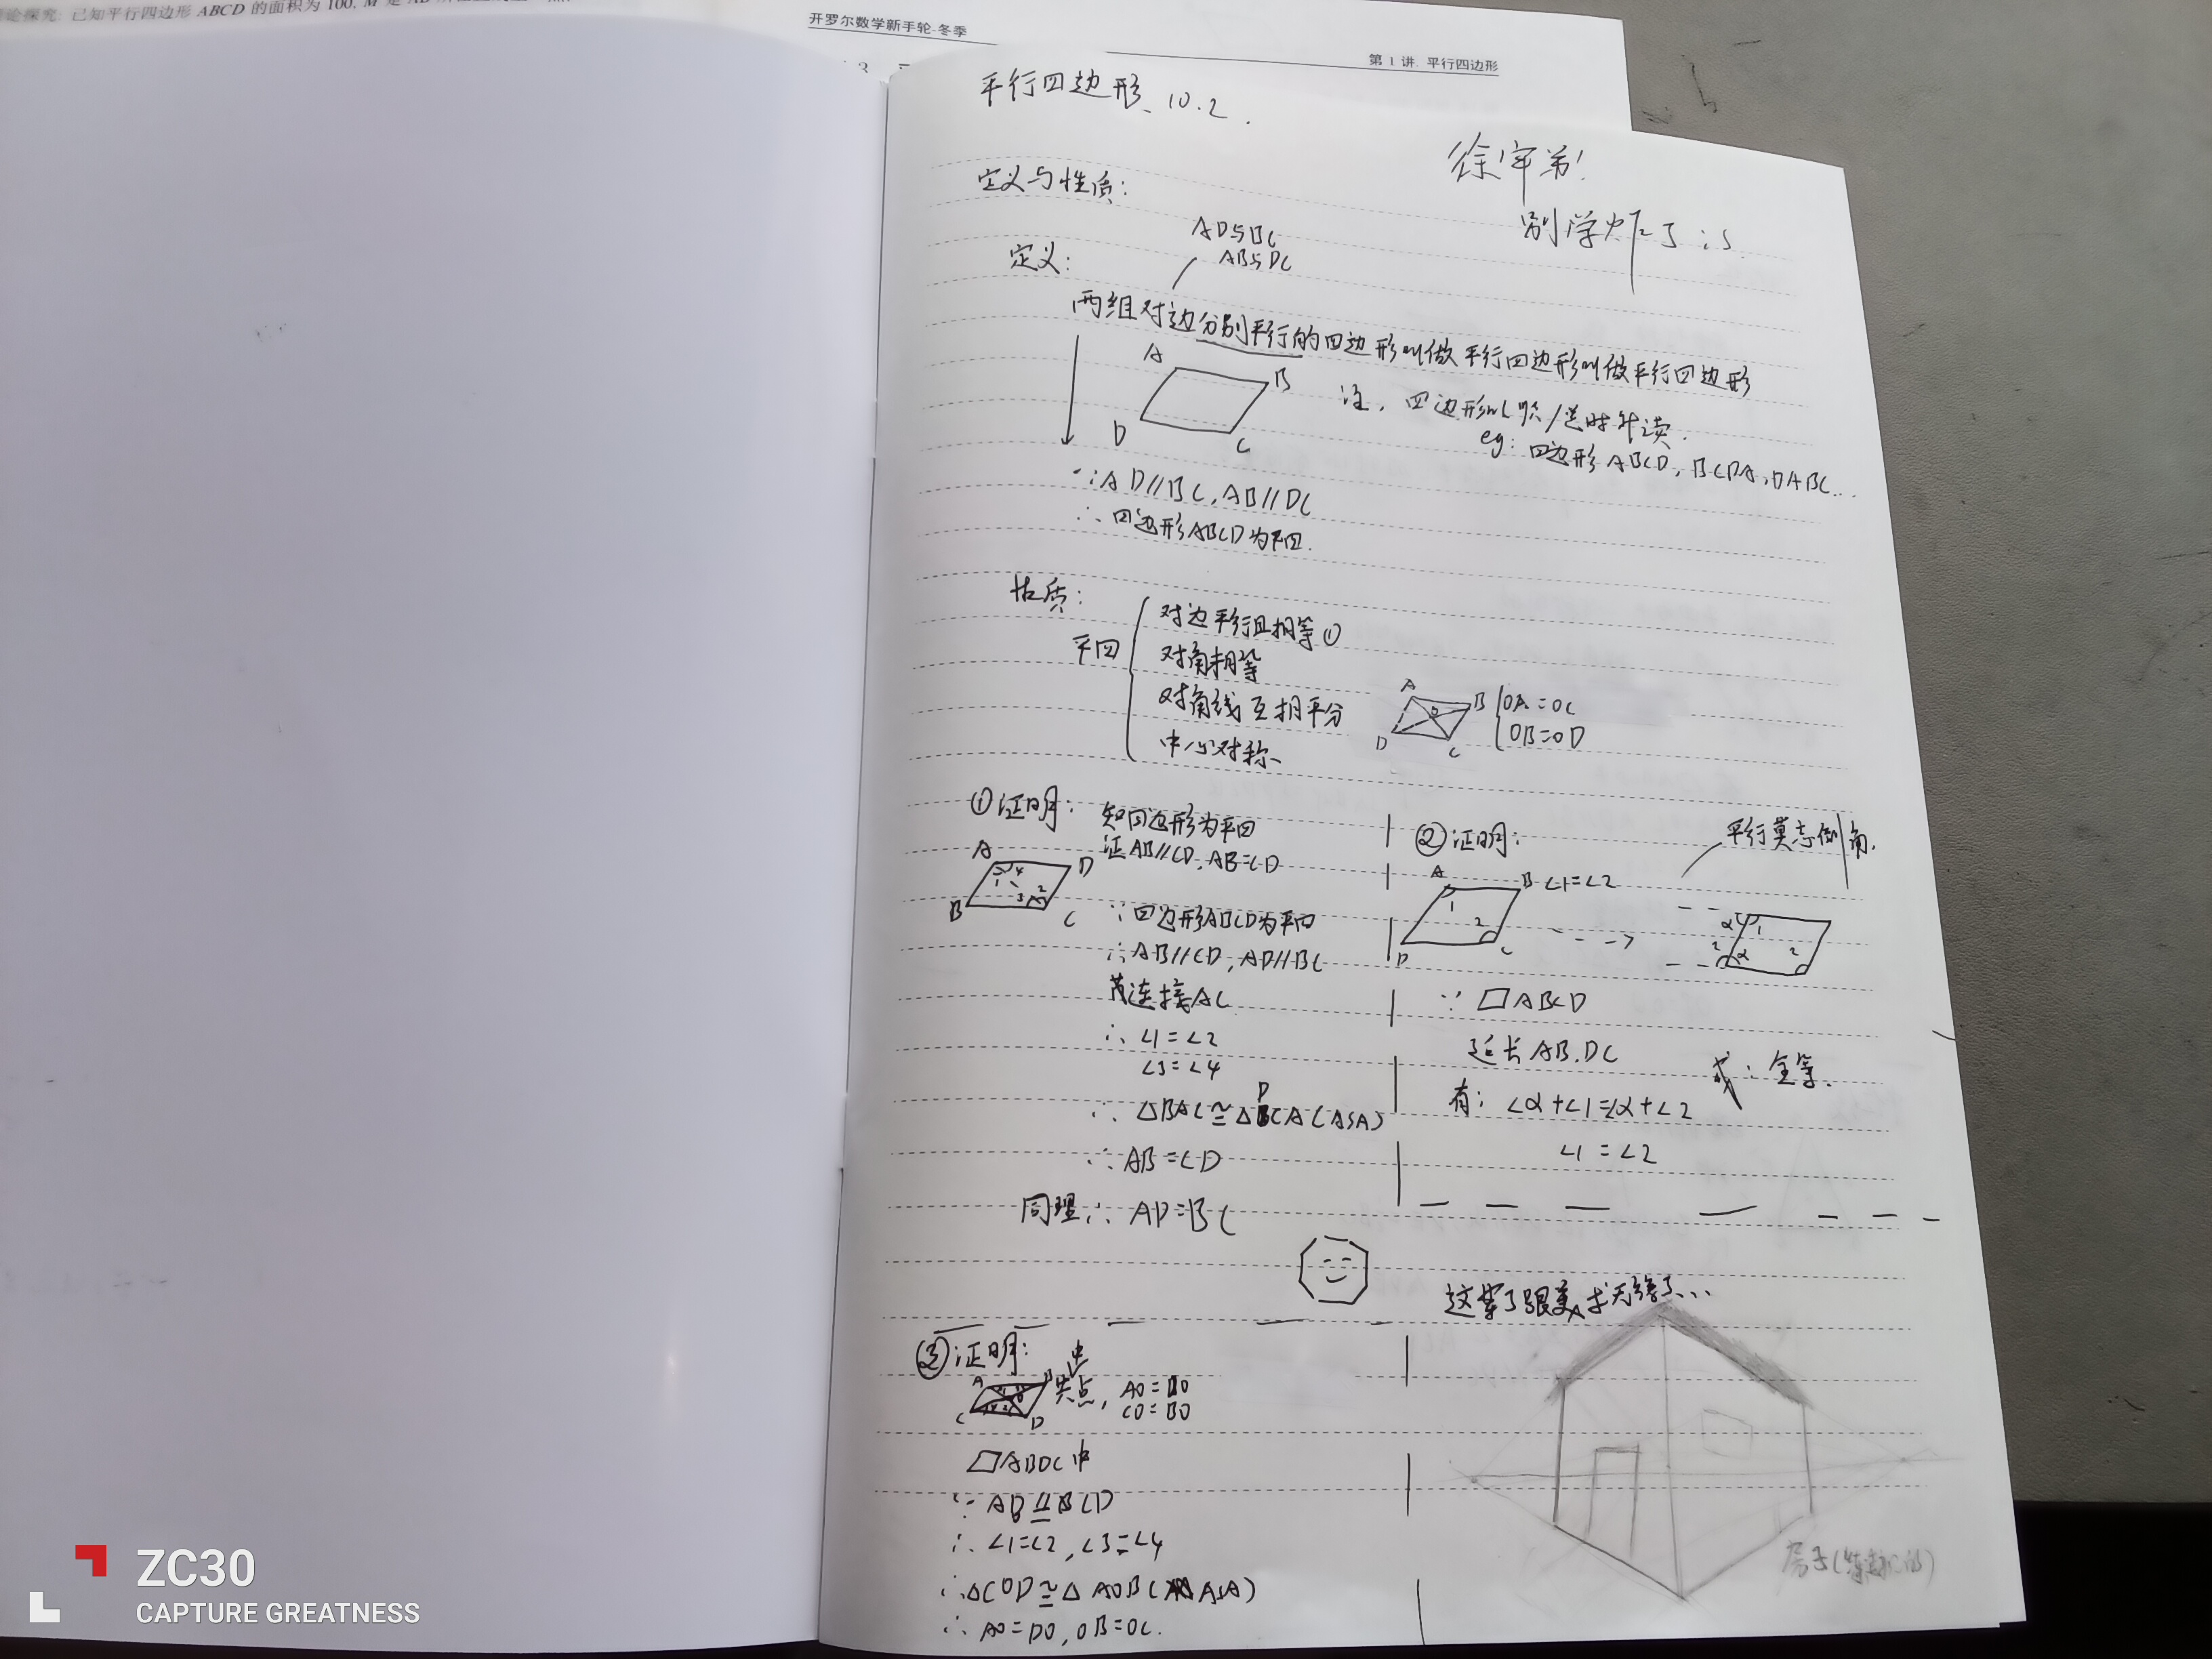 已知平行四边形 ABCD 的面积为 100, M 是
开罗尔数学新手轮-冬季
第 1 讲. 平行四边形
平行四边形 10.2.
别学炸了 :S
定义与性质:
定义:
AD与BC
AB与DC
两组对边分别平行的四边形叫做平行四边形叫做平行四边形
A
B
D
C
注, 四边形以顺/逆时针读.
eg: 四边形 ABCD, BCDA, DABC...
∵AD//BC, AB//DC
∴四边形ABCD为平四.
性质:
平四
对边平行且相等①
对角相等
对角线互相平分
中心对称
A
B
O
D
C
OA=OC
OB=OD
①证明:
知四边形为平四
证AB//CD, AB=CD
A
D
1
4
3
2
B
C
∵四边形ABCD为平四
∴AB//CD, AD//BC
连接AC
∴∠1=∠2
∠3=∠4
∴△BAC≅△DCA(ASA)
∴AB=CD
同理∴AD=BC
②证明:
平行莫忘倒角.
A
B
∠1=∠2
1
2
D
C
α
1
2
α
2
∵▱ABCD
延长AB.DC
或: 全等.
有: ∠α+∠1=∠α+∠2
∠1=∠2
③证明:
A
B
C
D
AO=DO
CO=BO
▱ABDC中
∵AB//CD
∴∠1=∠2, ∠3=∠4
∴△COD≅△AOB(ASA)
∴AO=DO, OB=OC.
房子
ZC30
CAPTURE GREATNESS